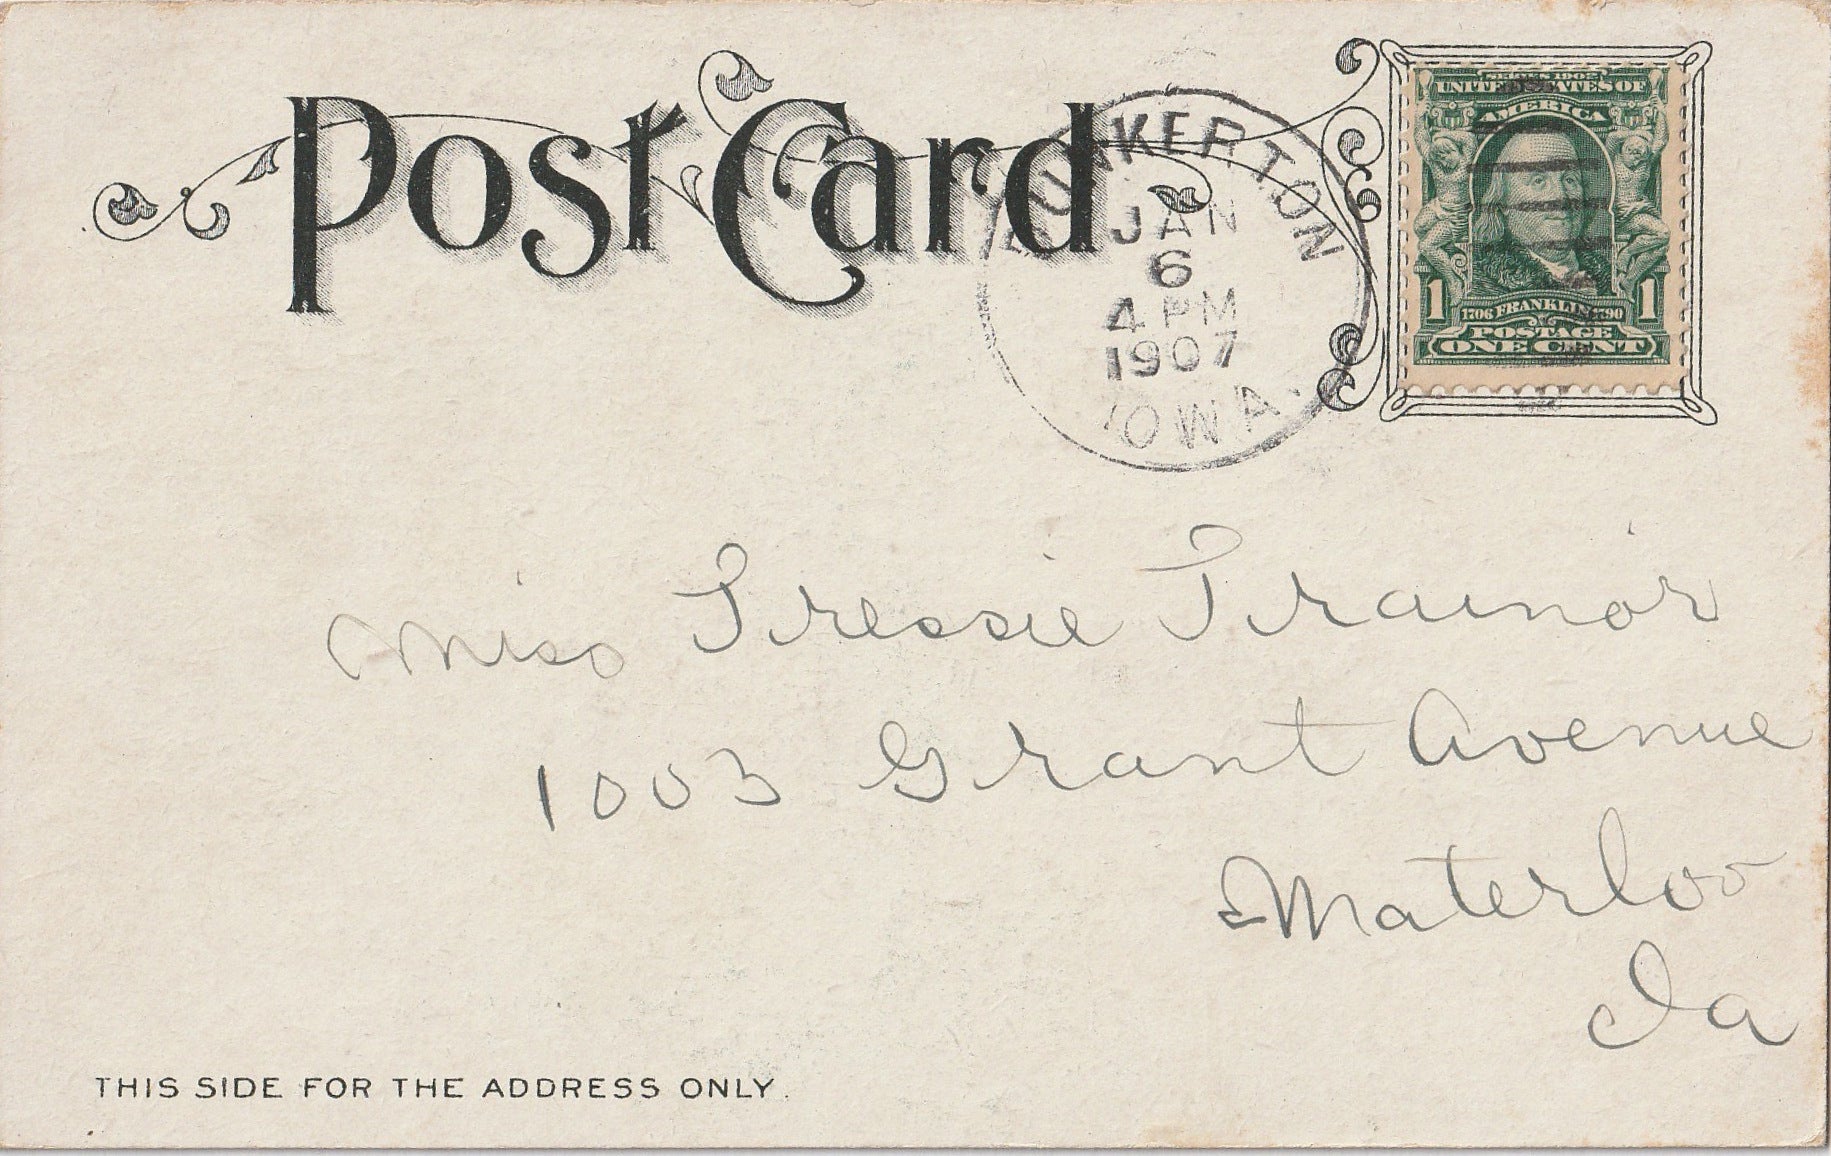 Post Card
DUNKERTON
JAN
6
4 PM
1907
IOWA.
SERIES 1902
UNITED STATES OF
AMERICA
1 1
1706 FRANKLIN 1790
POSTAGE
ONE CENT
Miss Tressie Trainor
1003 Grant Avenue
Waterloo
Ia
THIS SIDE FOR THE ADDRESS ONLY.